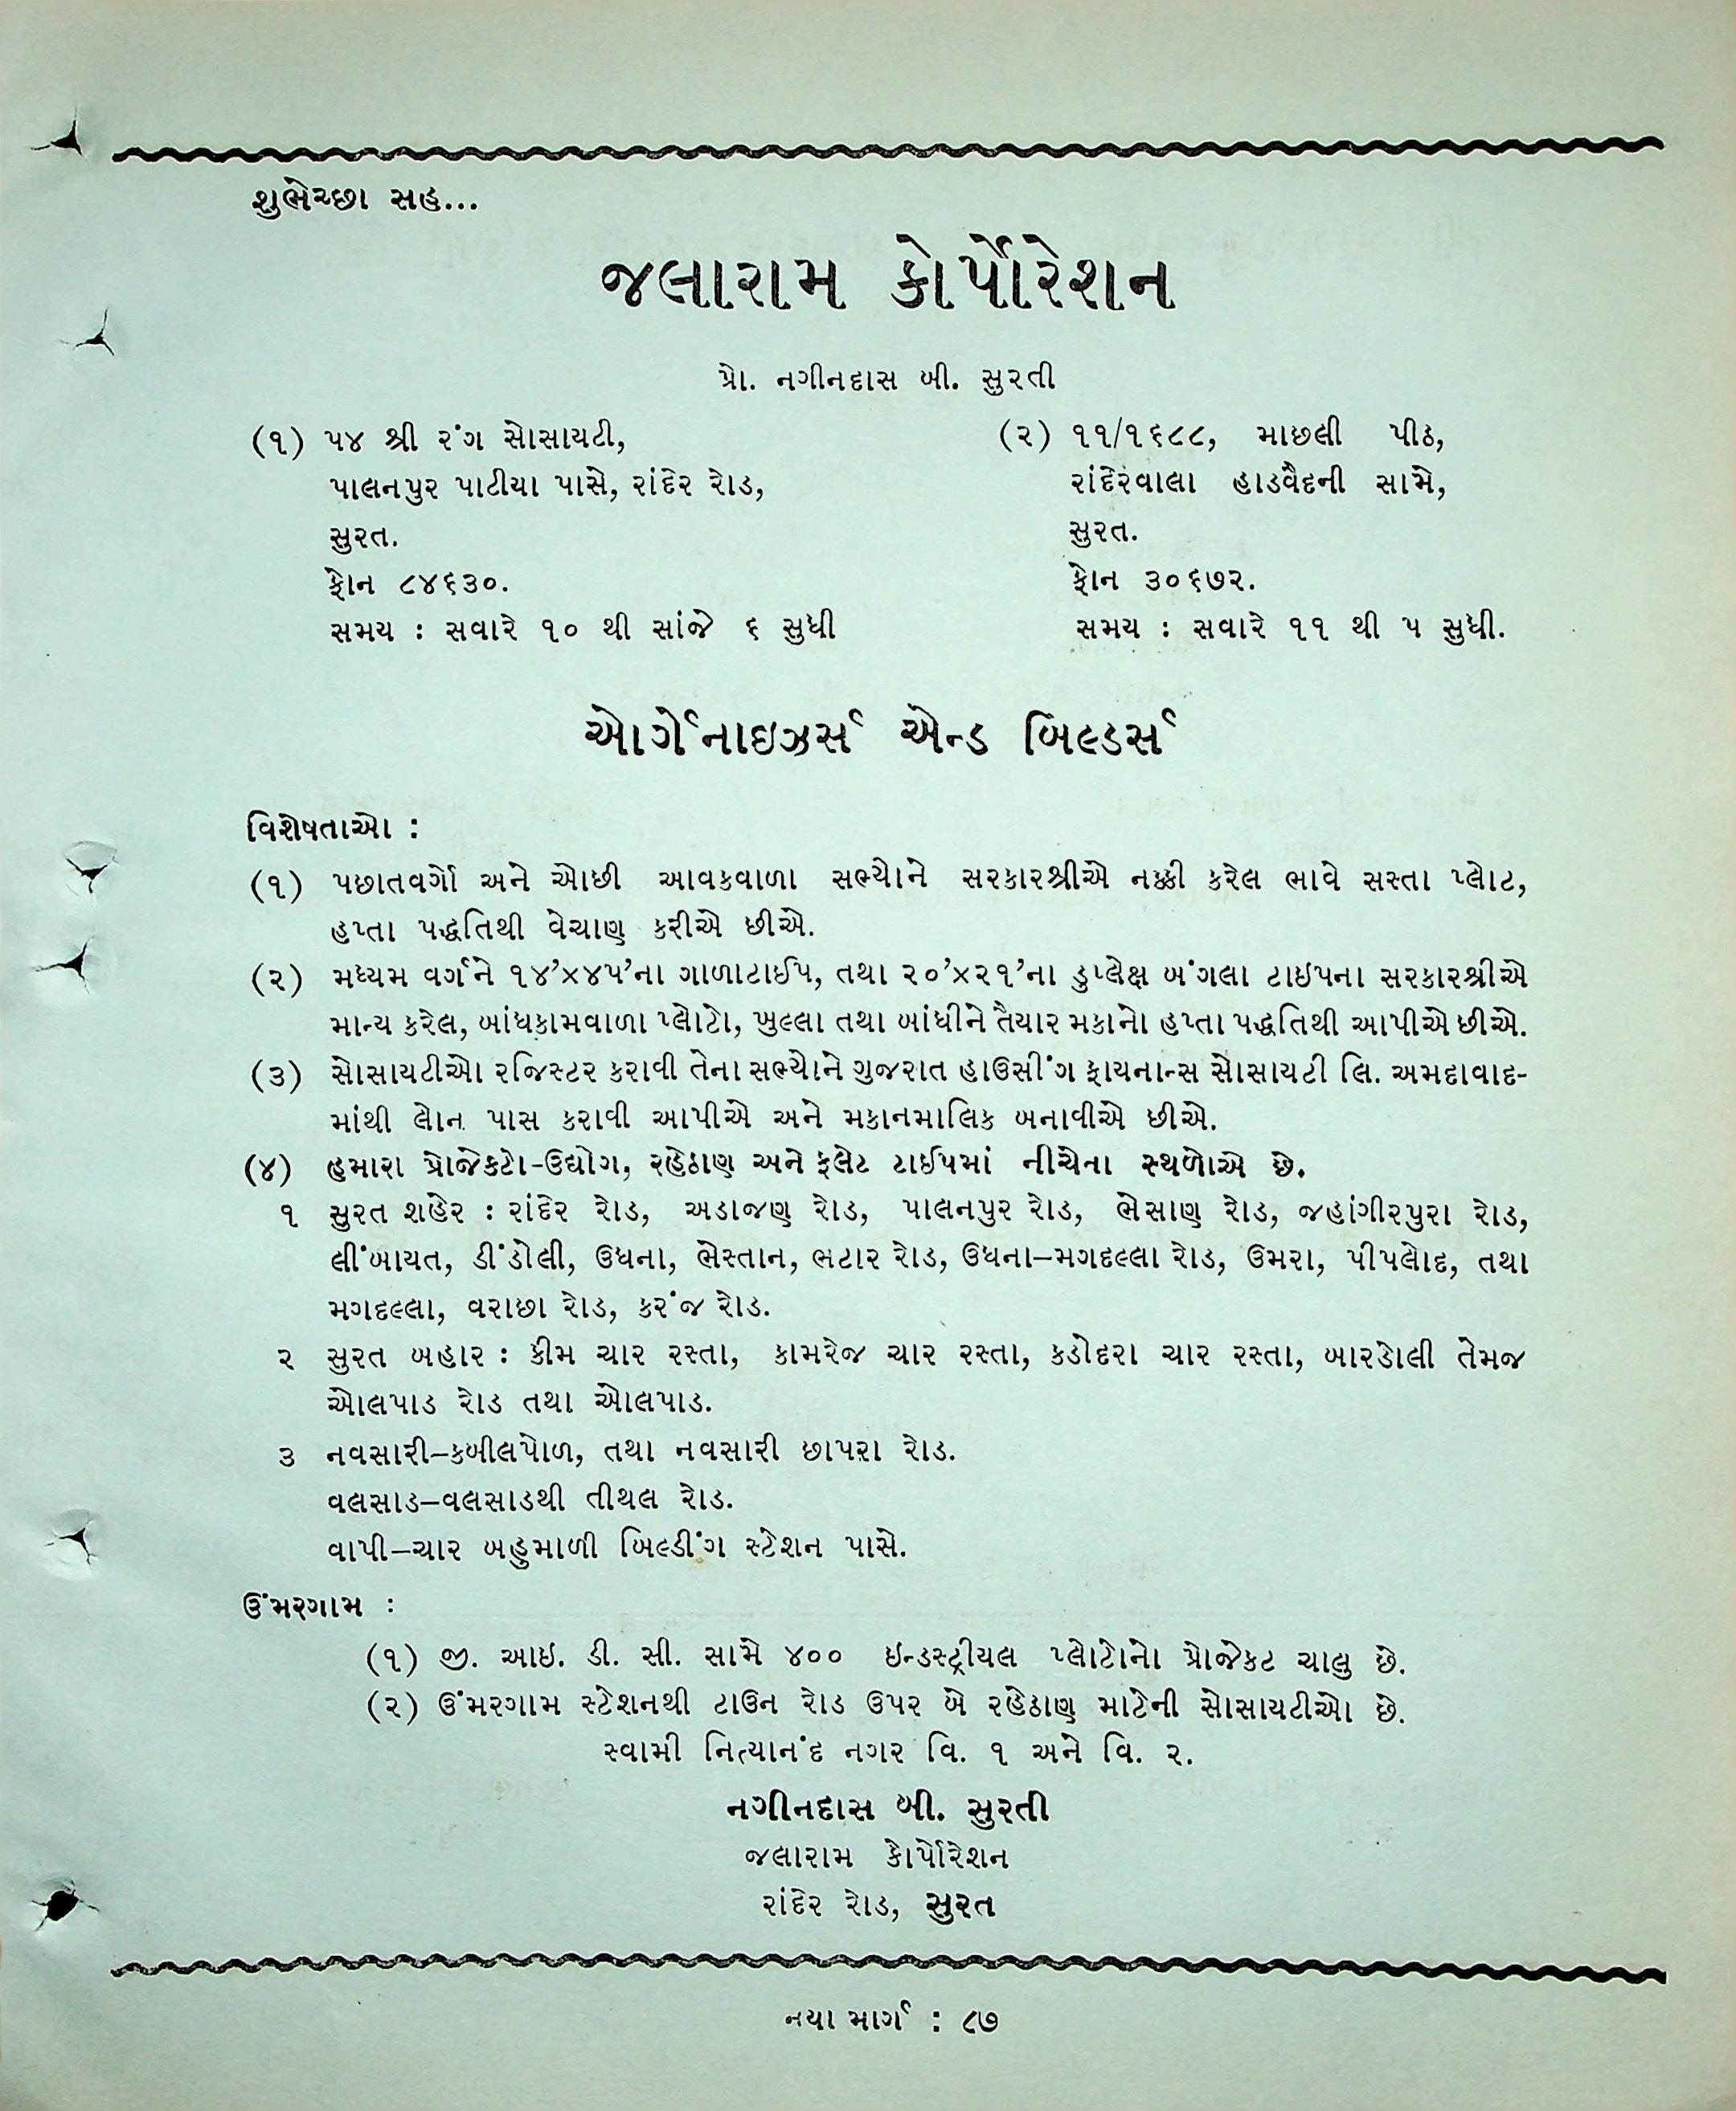 શુભેચ્છા સહ...
જલારામ કોર્પોરેશન
પ્રો. નગીનદાસ બી. સુરતી
(૧) ૫૪ શ્રી રંગ સોસાયટી,
પાલનપુર પાટીયા પાસે, રાંદેર રોડ,
સુરત.
ફોન ૮૪૬૩૦.
સમય : સવારે ૧૦ થી સાંજે ૬ સુધી
(૨) ૧૧/૧૬૮૮, માછલી પીઠ,
રાંદેરવાલા હાડવૈદની સામે,
સુરત.
ફોન ૩૦૬૭૨.
સમય : સવારે ૧૧ થી ૫ સુધી.
ઓર્ગેનાઇઝર્સ એન્ડ બિલ્ડર્સ
વિશેષતાઓ :
(૧) પછાતવર્ગો અને ઓછી આવકવાળા સભ્યોને સરકારશ્રીએ નક્કી કરેલ ભાવે સસ્તા પ્લોટ,
હપ્તા પદ્ધતિથી વેચાણ કરીએ છીએ.
(૨) મધ્યમ વર્ગને ૧૪’×૪૫’ના ગાળાટાઈપ, તથા ૨૦’×૨૧’ના ડુપ્લેક્ષ બંગલા ટાઈપના સરકારશ્રીએ
માન્ય કરેલ, બાંધકામવાળા પ્લોટો, ખુલ્લા તથા બાંધીને તૈયાર મકાનો હપ્તા પદ્ધતિથી આપીએ છીએ.
(૩) સોસાયટીઓ રજિસ્ટર કરાવી તેના સભ્યોને ગુજરાત હાઉસીંગ ફાયનાન્સ સોસાયટી લિ. અમદાવાદ-
માંથી લોન પાસ કરાવી આપીએ અને મકાનમાલિક બનાવીએ છીએ.
(૪) હમારા પ્રોજેકટો-ઉદ્યોગ, રહેઠાણ અને ફ્લેટ ટાઈપમાં નીચેના સ્થળોએ છે.
૧ સુરત શહેર : રાંદેર રોડ, અડાજણ રોડ, પાલનપુર રોડ, ભેસાણ રોડ, જહાંગીરપુરા રોડ,
લીંબાયત, ડીંડોલી, ઉધના, ભેસ્તાન, ભટાર રોડ, ઉધના–મગદલ્લા રોડ, ઉમરા, પીપલોદ, તથા
મગદલ્લા, વરાછા રોડ, કરંજ રોડ.
૨ સુરત બહાર : કીમ ચાર રસ્તા, કામરેજ ચાર રસ્તા, કડોદરા ચાર રસ્તા, બારડોલી તેમજ
ઓલપાડ રોડ તથા ઓલપાડ.
૩ નવસારી–કબીલપોળ, તથા નવસારી છાપરા રોડ.
વલસાડ–વલસાડથી તીથલ રોડ.
વાપી–ચાર બહુમાળી બિલ્ડીંગ સ્ટેશન પાસે.
ઉંમરગામ :
(૧) જી. આઇ. ડી. સી. સામે ૪૦૦ ઇન્ડસ્ટ્રીયલ પ્લોટોનો પ્રોજેકટ ચાલુ છે.
(૨) ઉંમરગામ સ્ટેશનથી ટાઉન રોડ ઉપર બે રહેઠાણ માટેની સોસાયટીઓ છે.
સ્વામી નિત્યાનંદ નગર વિ. ૧ અને વિ. ૨.
નગીનદાસ બી. સુરતી
જલારામ કોર્પોરેશન
રાંદેર રોડ, સુરત
નયા માર્ગ : ૮૭